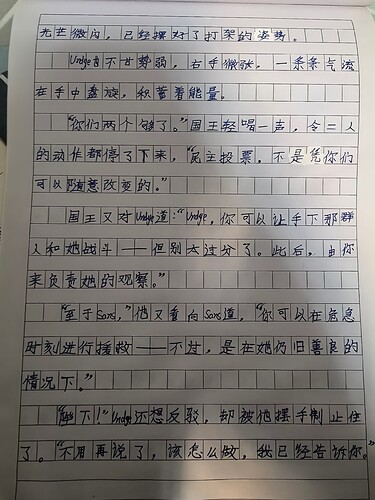 光芒微闪，已经摆好了打架的姿势。
Undge也不甘势弱，右手微张，一条条气流
在手中盘旋，积蓄着能量。
“你们两个够了。”国王轻喝一声，令二人
的动作都停了下来，“民主投票，不是凭你们
可以随意改变的。”
国王又对Undge道：“Undge，你可以让手下那群
人和她战斗——但别太过分了。此后，由你
来负责她的观察。”
“至于Sans，”他又看向Sans道，“你可以在危急
时刻进行援救——不过，是在她仍旧善良的
情况下。”
“陛下！”Undge还想反驳，却被他摆手制止住
了。“不用再说了，该怎么做，我已经告诉你。”